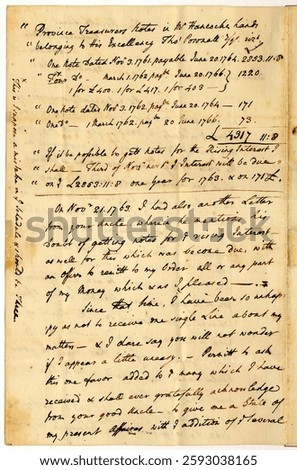 " Province Treasurers Notes in Mr Hancocks hands
" belonging to his Excellency Thos Pownall
" One Note Dated Novr 3. 1761. payable June 20. 1764. 2853:11:8
" Four Do — March 1. 1762 payle June 20. 1766. } 1220.
1 for £400. 1 for £417. 1 for 403 —
" One note dated Nov. 3. 1762. payle June 20. 1764 — 171
" One Do — 1 March 1762. payle 20 June 1766. 73.
£ 4317 11:8
" If it be possible to gett notes for the Rising Interest I
" shall — Third of Novr next Interest will be due
" on £2853:11:8 one Year for 1763. & on 171 £
On Novr 21. 1763 I had also another Letter
from your Uncle wherein he mentions his
Doubt of getting Notes for rising Interest
as well for this which was become due, with
an offer to remitt to my Order all or any part
of my Money which was I pleased —
Since that time, I have been so unhap-
py as not to receive one single Line about my
matters — & I dare say you will not wonder
if I appear a little uneasy. — Permitt to ask
this one favor added to many which I have
received & shall ever gratefully acknowledge
from your good Uncle — to give me a State of
my present Affaires with addition of several
This I suppose a mistake & should be Three
shutterstock
shutterstock.com · 2593038165